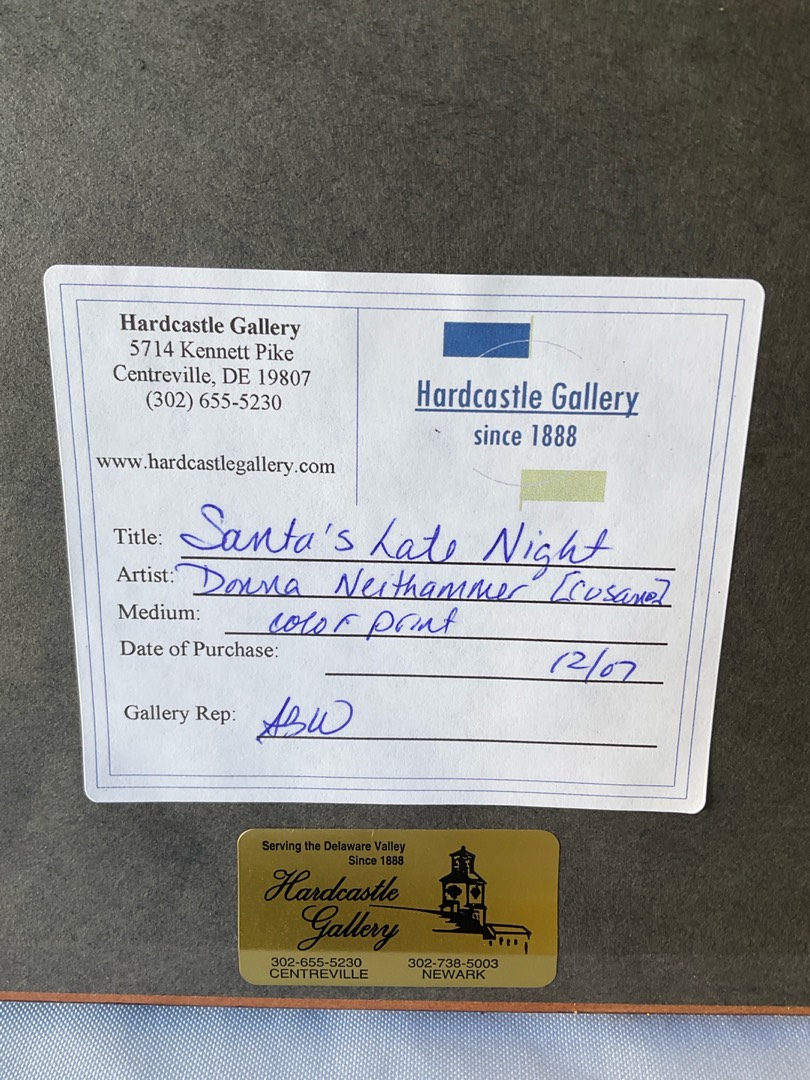 Hardcastle Gallery
5714 Kennett Pike
Centreville, DE 19807
(302) 655-5230
www.hardcastlegallery.com
Hardcastle Gallery
since 1888
Title: Santa's Late Night
Artist: Donna Neithammer [Cusano]
Medium: color print
Date of Purchase: 12/07
Gallery Rep: ABW
Serving the Delaware Valley
Since 1888
Hardcastle
Gallery
302-655-5230 302-738-5003
CENTREVILLE NEWARK